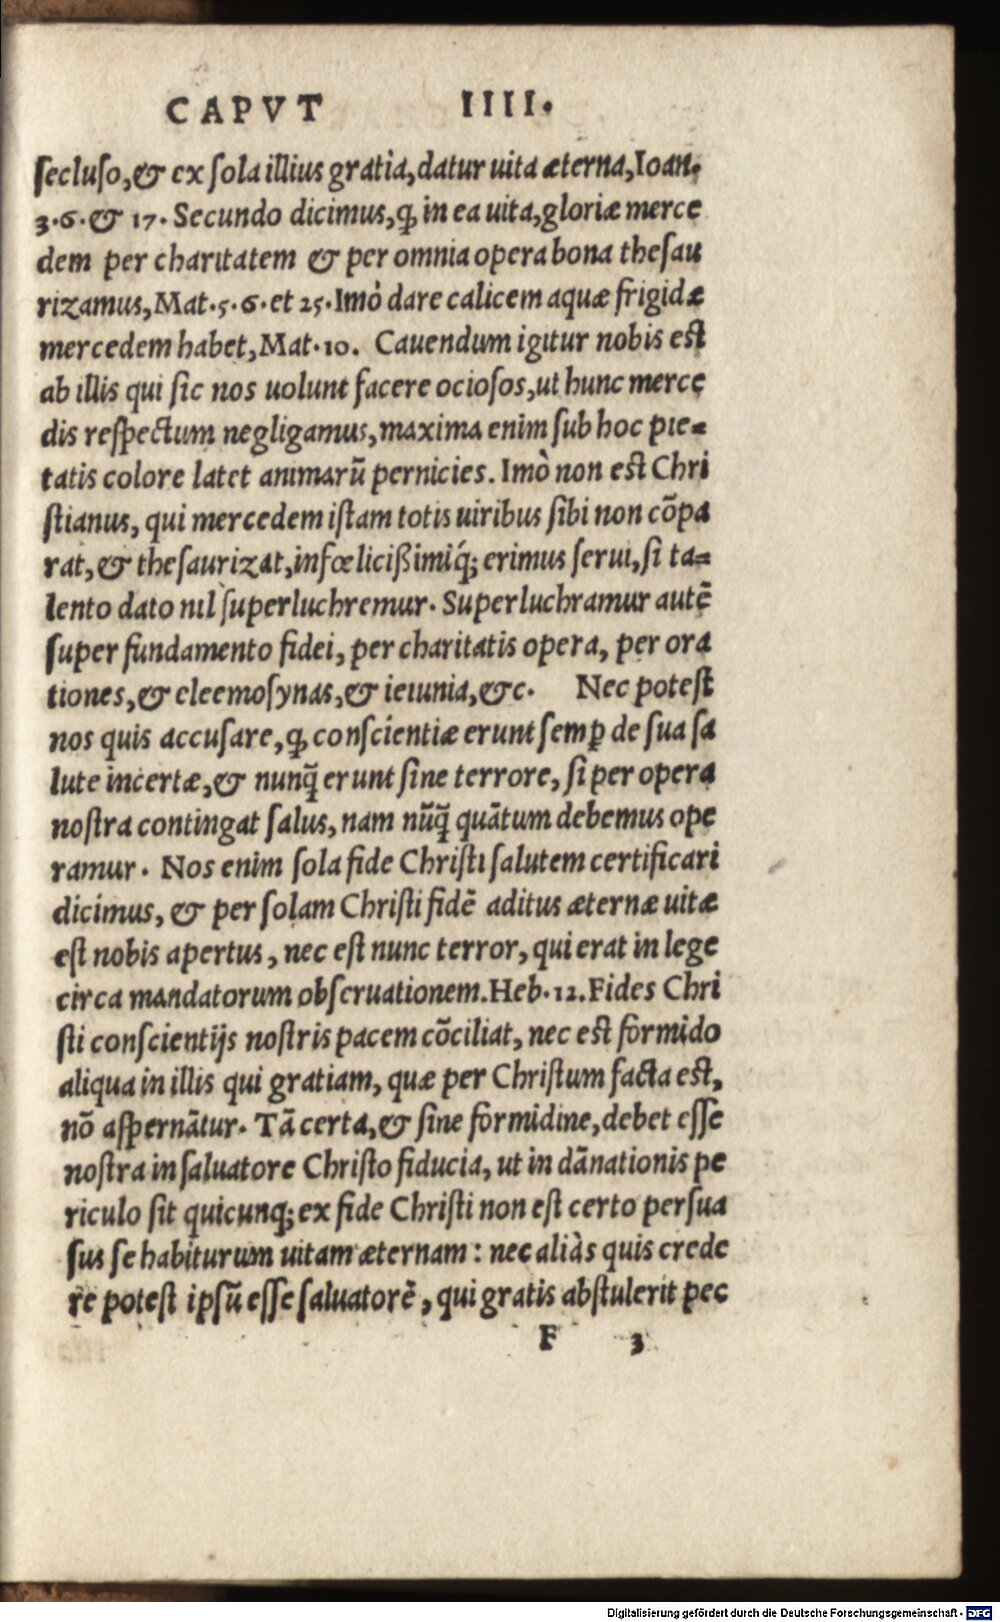 CAPVT IIII.
secluso, & ex sola illius gratia, datur uita æterna, Ioan.
3.6.& 17. Secundo dicimus, ꝙ in ea uita, gloriæ merce
dem per charitatem & per omnia opera bona thesau
rizamus, Mat.5.6.et 25. Imò dare calicem aquæ frigidæ
mercedem habet, Mat.10. Cauendum igitur nobis est
ab illis qui sic nos uolunt facere ociosos, ut hunc merce
dis respectum negligamus, maxima enim sub hoc pie-
tatis colore latet animarũ pernicies. Imò non est Chri
stianus, qui mercedem istam totis uiribus sibi non cõpa
rat, & thesaurizat, infœlicißimiq́; erimus serui, si ta-
lento dato nil superluchremur. Superluchramur autẽ
super fundamento fidei, per charitatis opera, per ora
tiones, & eleemosynas, & ieiunia, &c. Nec potest
nos quis accusare, ꝙ conscientiæ erunt semꝑ de sua sa
lute incertæ, & nunq̃ erunt sine terrore, si per opera
nostra contingat salus, nam nũq̃ quãtum debemus ope
ramur. Nos enim sola fide Christi salutem certificari
dicimus, & per solam Christi fidẽ aditus æternæ uitæ
est nobis apertus, nec est nunc terror, qui erat in lege
circa mandatorum obseruationem. Heb.12. Fides Chri
sti conscientijs nostris pacem cõciliat, nec est formido
aliqua in illis qui gratiam, quæ per Christum facta est,
nõ aspernãtur. Tã certa, & sine formidine, debet esse
nostra in saluatore Christo fiducia, ut in dãnationis pe
riculo sit quicunq; ex fide Christi non est certo persua
sus se habiturum uitam æternam: nec aliàs quis crede
re potest ipsũ esse saluatorẽ, qui gratis abstulerit pec
F 3
Digitalisierung gefördert durch die Deutsche Forschungsgemeinschaft - DFG